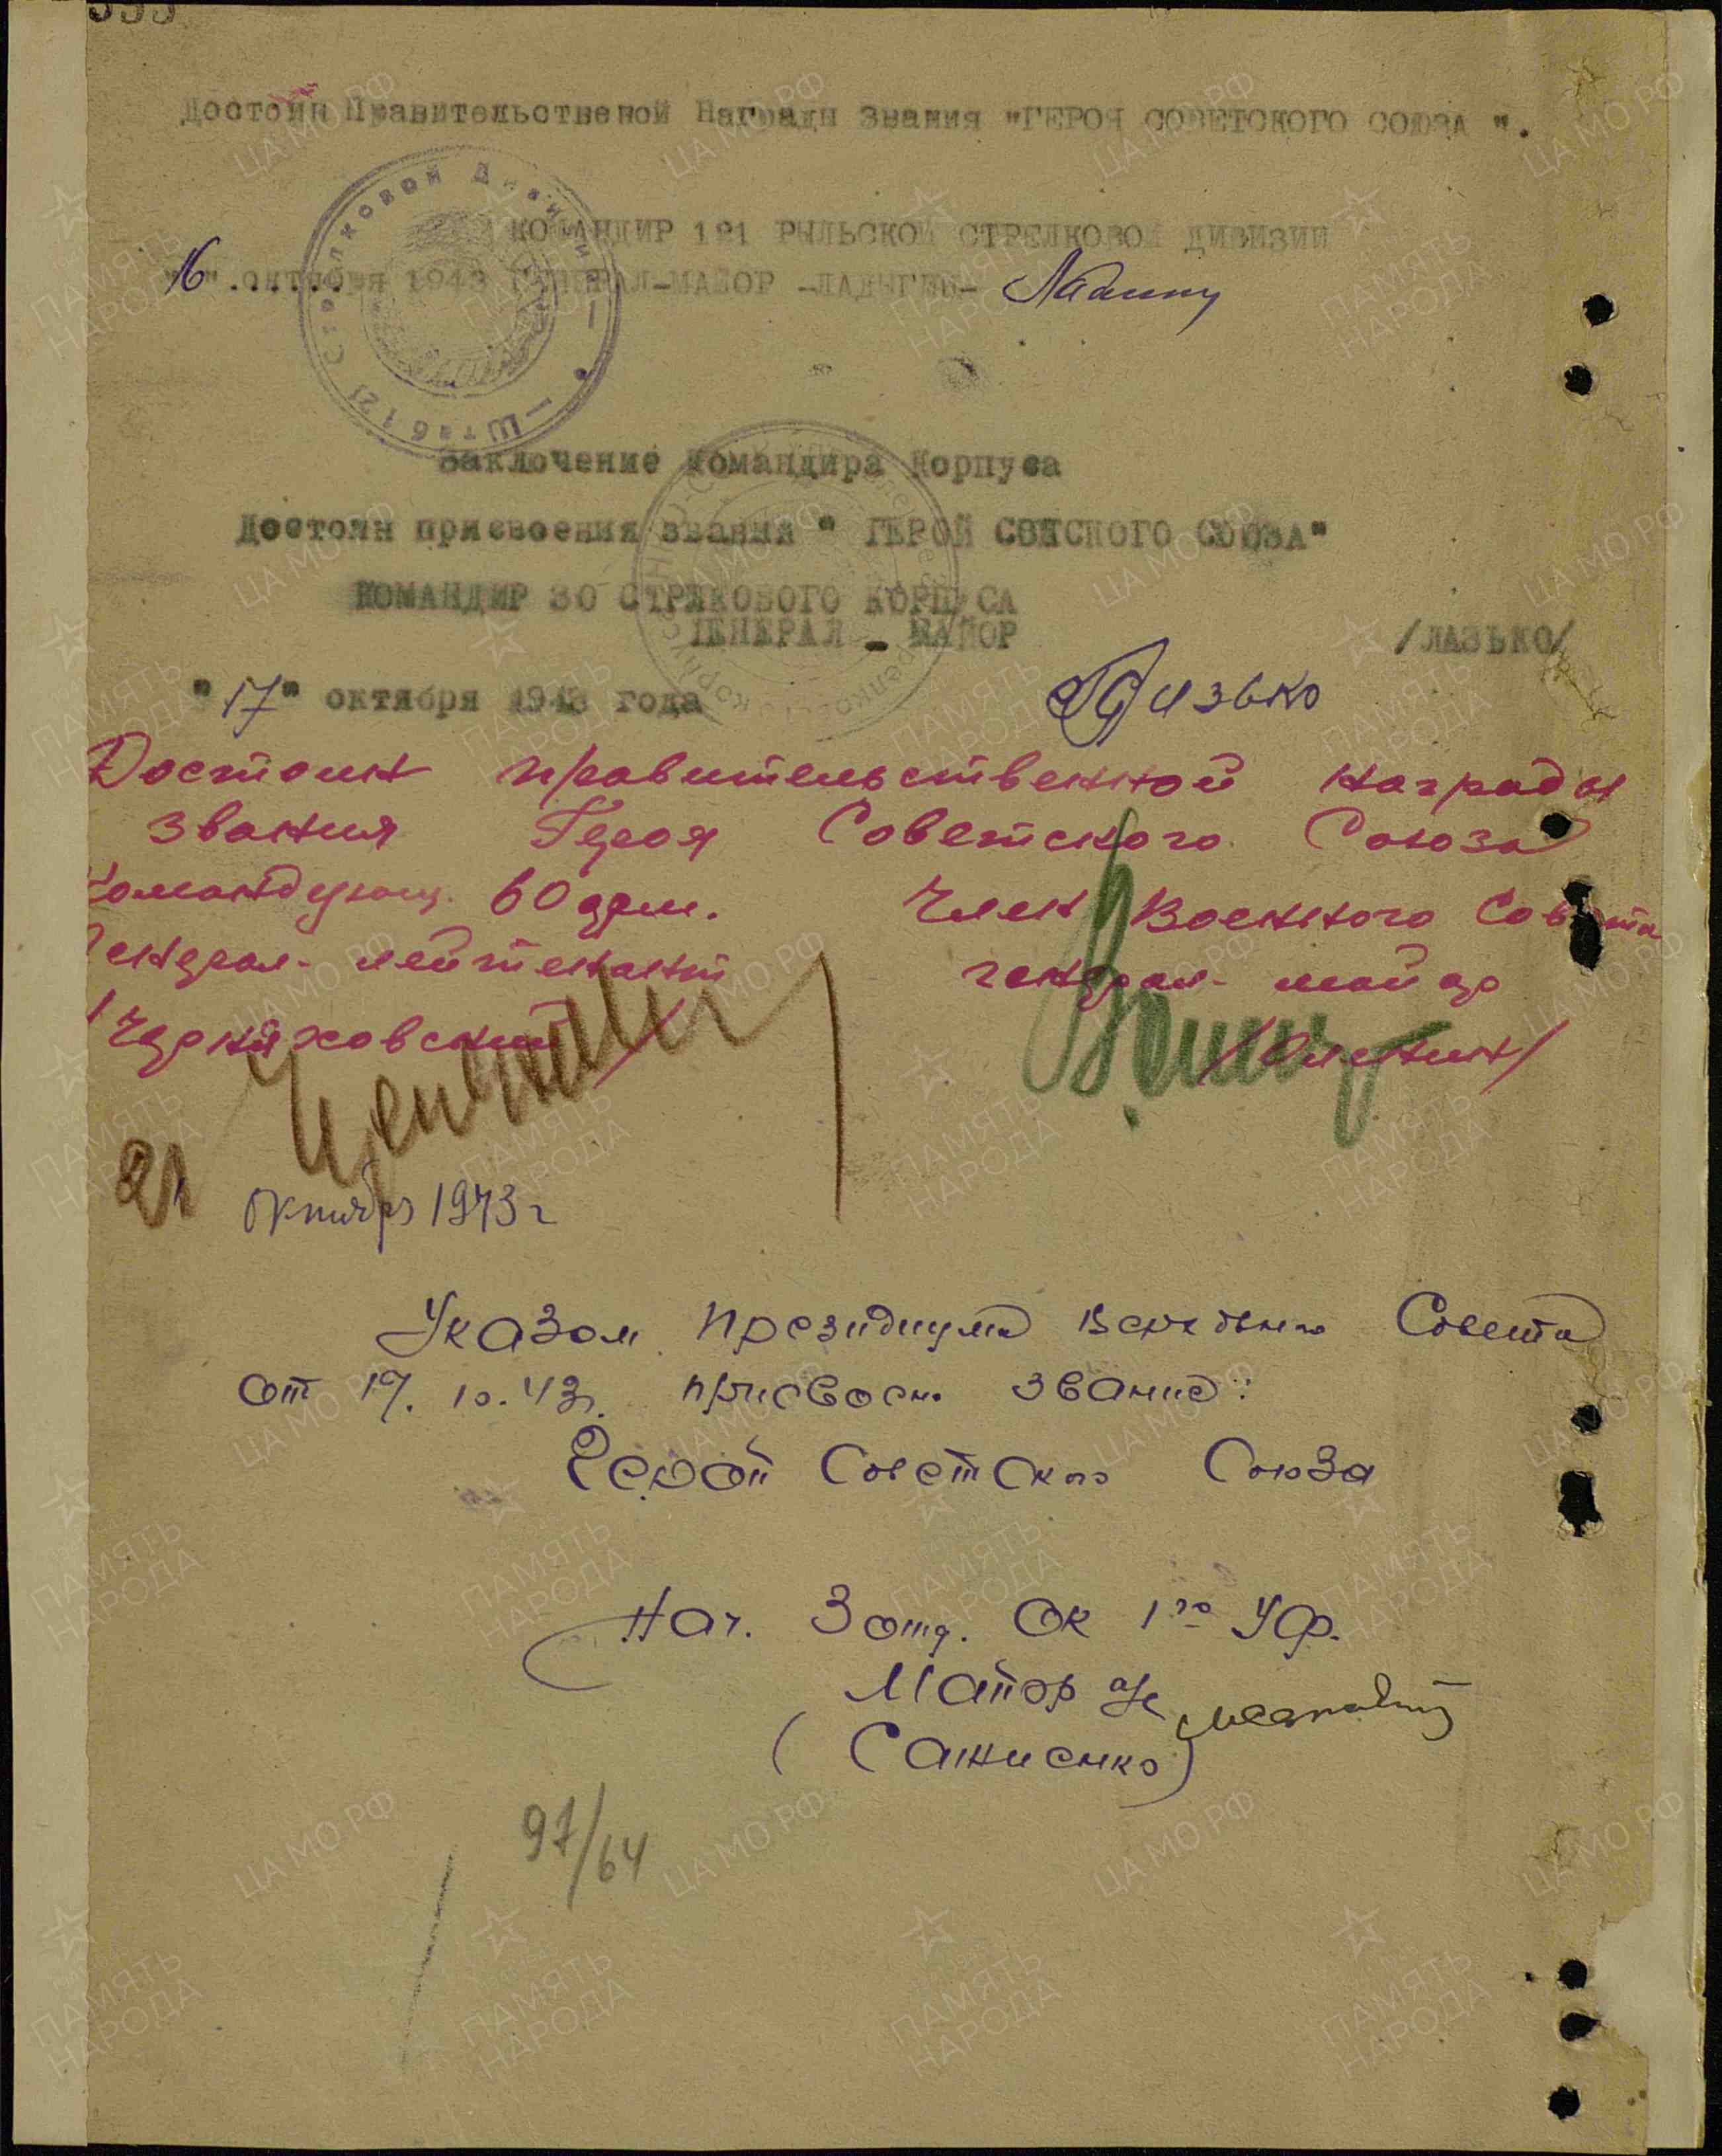 Достоин Правительственой Награды Звания "ГЕРОЯ СОВЕТСКОГО СОЮЗА ".
КОМАНДИР 121 РЫЛЬСКОЙ СТРЕЛКОВОЙ ДИВИЗИИ
"16" октября 1943 ГЕНЕРАЛ-МАЙОР -ЛАДЫГИН-
Штаб 121 Стрелковой Дивизии
Заключение Командира Корпуса
Достоин присвоения звания " ГЕРОЙ СВЕСКОГО СОЮЗА"
КОМАНДИР 30 СТРЛКОВОГО КОРПУСА
ГЕНЕРАЛ - МАЙОР /ЛАЗЬКО/
"17" октября 1943 года Глазько
Достоин правительственной награды
звания Героя Советского Союза
Командующ. 60 арм. Член Военного Совета
Генерал-лейтенант генерал-майор
/Черняховский/ /Оленин/
21 октября 1943 г
Указом Президиума Верховного Совета
от 17.10.43г. присвоено звание:
Герой Советского Союза
Нач. 3 отд. ОК 1го УФ.
Майор а/с
(Саписнко)
97/64
ЦА МО РФ
ПАМЯТЬ НАРОДА